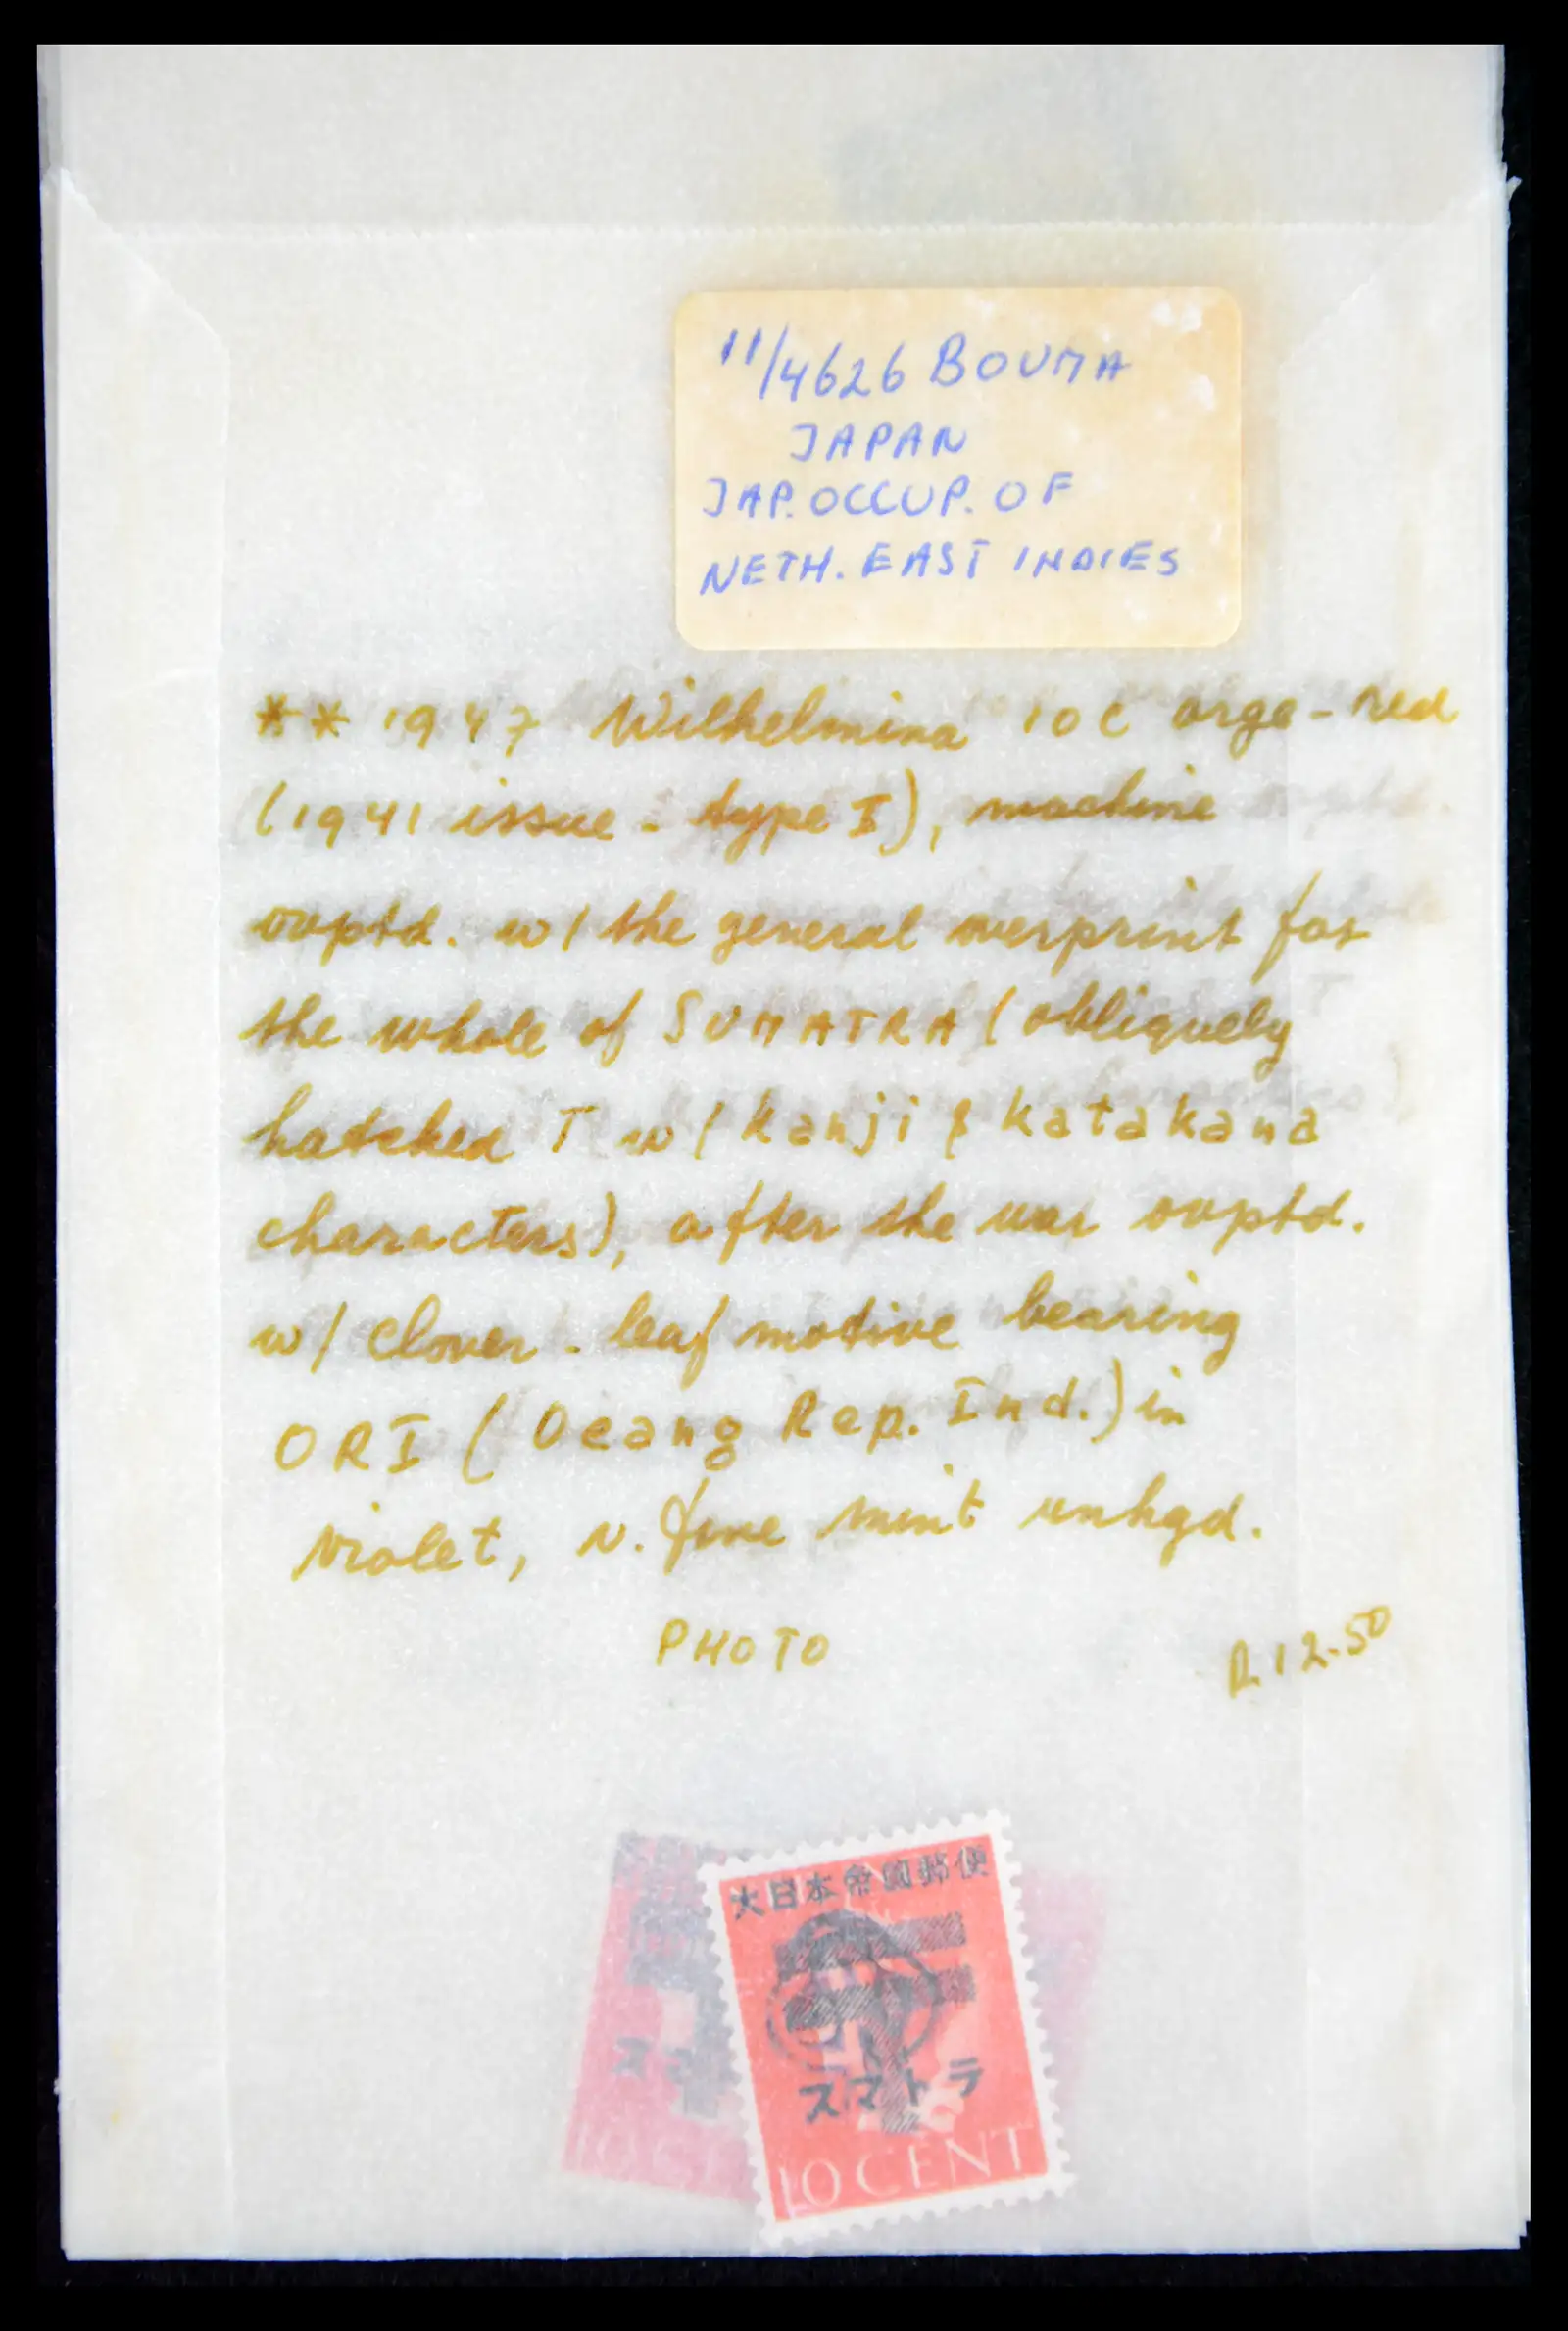 11/4626 BOUMA
JAPAN
JAP. OCCUP. OF
NETH. EAST INDIES
** 1947 Wilhelmina 10 c orge-red
(1941 issue - type I), machine
ovptd. w/ the general overprint for
the whole of SUMATRA (obliquely
hatched T w/ kanji & katakana
characters), after the war ovptd.
w/ clover-leaf motive bearing
ORI (Oeang Rep. Ind.) in
violet, v. fine mint unhgd.
PHOTO
R.12.50
大日本帝國郵便
スマトラ
10 CENT